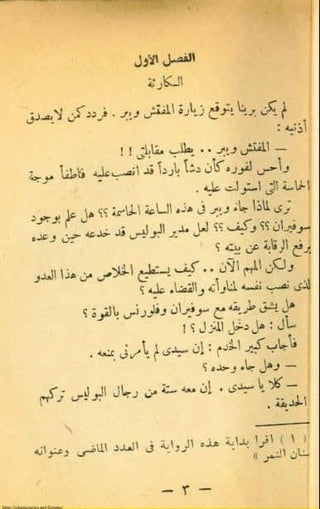 الفصل الأول
الكارثة
لم يكن برينا يتوقع زيارة المفتش ويبر . فردد كمن لا يصدق
أذنيه :
— المفتش ويبر . . يطلب مقابلتى ! !
وأحس لفوره كأن دشاً بارداً قد انصب عليه فأطفأ موجة
الحماسة التى استولت عليه .
ترى لماذا جاء ويبر فى هذه الساعة الحاسمة ؟؟ هل علم بوجود
سوفيران ؟؟ وكيف ؟؟ لعل مدير البوليس قد خدعه حين وعده
برفع الرقابة عن بيته ؟
ولكن المهم الآن . . كيف يستطيع الخلاص من هذا العدو
لذى نصب نفسه لمناوأته والقضاء عليه ؟
هل يشق طريقه مع سوفيران وفلورنس بالقوة ؟
سأل : هل دخل المنزل ؟ !
فأجاب كبير الخدم : إن سيدى لم يأمرنى بمنعه .
— وهل جاء وحده ؟
— كلا يا سيدى . إن معه ستة من رجال البوليس تركهم
الحديقة .
( ١ ) اقرا بداية هذه الرواية فى العدد الماضى وعنوانه
سنان النمر »
— ٣ —